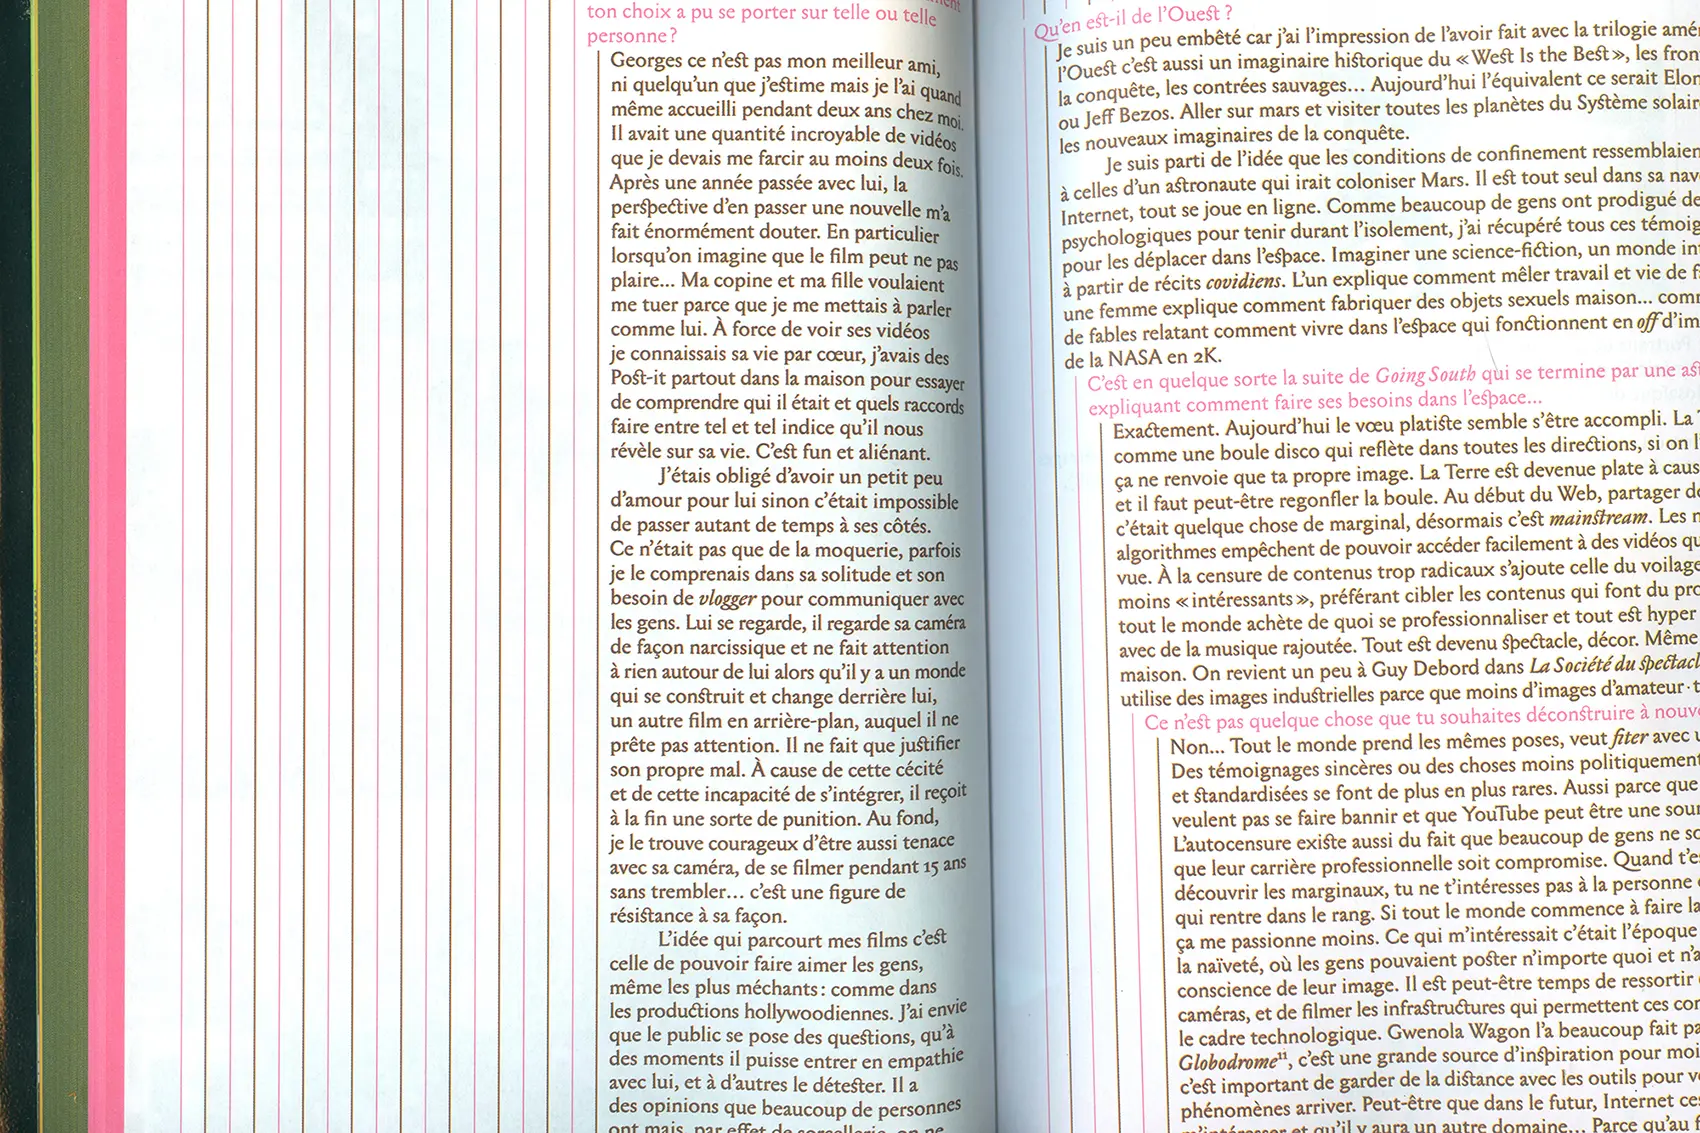 ton choix a pu se porter sur telle ou telle
personne ?
Georges ce n'est pas mon meilleur ami,
ni quelqu'un que j'estime mais je l'ai quand
même accueilli pendant deux ans chez moi.
Il avait une quantité incroyable de vidéos
que je devais me farcir au moins deux fois.
Après une année passée avec lui, la
perspective d'en passer une nouvelle m'a
fait énormément douter. En particulier
lorsqu'on imagine que le film peut ne pas
plaire... Ma copine et ma fille voulaient
me tuer parce que je me mettais à parler
comme lui. À force de voir ses vidéos
je connaissais sa vie par cœur, j'avais des
Post-it partout dans la maison pour essayer
de comprendre qui il était et quels raccords
faire entre tel et tel indice qu'il nous
révèle sur sa vie. C'est fun et aliénant.
J'étais obligé d'avoir un petit peu
d'amour pour lui sinon c'était impossible
de passer autant de temps à ses côtés.
Ce n'était pas que de la moquerie, parfois
je le comprenais dans sa solitude et son
besoin de vlogger pour communiquer avec
les gens. Lui se regarde, il regarde sa caméra
de façon narcissique et ne fait attention
à rien autour de lui alors qu'il y a un monde
qui se construit et change derrière lui,
un autre film en arrière-plan, auquel il ne
prête pas attention. Il ne fait que justifier
son propre mal. À cause de cette cécité
et de cette incapacité de s'intégrer, il reçoit
à la fin une sorte de punition. Au fond,
je le trouve courageux d'être aussi tenace
avec sa caméra, de se filmer pendant 15 ans
sans trembler... c'est une figure de
résistance à sa façon.
L'idée qui parcourt mes films c'est
celle de pouvoir faire aimer les gens,
même les plus méchants : comme dans
les productions hollywoodiennes. J'ai envie
que le public se pose des questions, qu'à
des moments il puisse entrer en empathie
avec lui, et à d'autres le détester. Il a
des opinions que beaucoup de personnes
ont mais, par effet de sorcellerie, on ne
Qu'en est-il de l'Ouest ?
Je suis un peu embêté car j'ai l'impression de l'avoir fait avec la trilogie amé
l'Ouest c'est aussi un imaginaire historique du « West Is the Best », les fron
la conquête, les contrées sauvages... Aujourd'hui l'équivalent ce serait Elon
ou Jeff Bezos. Aller sur mars et visiter toutes les planètes du Système solaire
les nouveaux imaginaires de la conquête.
Je suis parti de l'idée que les conditions de confinement ressemblaien
à celles d'un astronaute qui irait coloniser Mars. Il est tout seul dans sa nav
Internet, tout se joue en ligne. Comme beaucoup de gens ont prodigué de
psychologiques pour tenir durant l'isolement, j'ai récupéré tous ces témoig
pour les déplacer dans l'espace. Imaginer une science-fiction, un monde in
à partir de récits covidiens. L'un explique comment mêler travail et vie de f
une femme explique comment fabriquer des objets sexuels maison... com
de fables relatant comment vivre dans l'espace qui fonctionnent en off d'im
de la NASA en 2K.
C'est en quelque sorte la suite de Going South qui se termine par une as
expliquant comment faire ses besoins dans l'espace...
Exactement. Aujourd'hui le vœu platiste semble s'être accompli. La T
comme une boule disco qui reflète dans toutes les directions, si on l
ça ne renvoie que ta propre image. La Terre est devenue plate à caus
et il faut peut-être regonfler la boule. Au début du Web, partager de
c'était quelque chose de marginal, désormais c'est mainstream. Les n
algorithmes empêchent de pouvoir accéder facilement à des vidéos qu
vue. À la censure de contenus trop radicaux s'ajoute celle du voilage
moins « intéressants », préférant cibler les contenus qui font du pro
tout le monde achète de quoi se professionnaliser et tout est hyper
avec de la musique rajoutée. Tout est devenu spectacle, décor. Même
maison. On revient un peu à Guy Debord dans La Société du spectacle
utilise des images industrielles parce que moins d'images d'amateur·t
Ce n'est pas quelque chose que tu souhaites déconstruire à nouve
Non... Tout le monde prend les mêmes poses, veut fiter avec u
Des témoignages sincères ou des choses moins politiquement
et standardisées se font de plus en plus rares. Aussi parce que
veulent pas se faire bannir et que YouTube peut être une sour
L'autocensure existe aussi du fait que beaucoup de gens ne so
que leur carrière professionnelle soit compromise. Quand t'es
découvrir les marginaux, tu ne t'intéresses pas à la personne
qui rentre dans le rang. Si tout le monde commence à faire la
ça me passionne moins. Ce qui m'intéressait c'était l'époque
la naïveté, où les gens pouvaient poster n'importe quoi et n'a
conscience de leur image. Il est peut-être temps de ressortir
caméras, et de filmer les infrastructures qui permettent ces con
le cadre technologique. Gwenola Wagon l'a beaucoup fait pa
Globodrome¹¹, c'est une grande source d'inspiration pour moi
c'est important de garder de la distance avec les outils pour v
phénomènes arriver. Peut-être que dans le futur, Internet ces
m'intéresser et qu'il y aura un autre domaine... Parce qu'au f